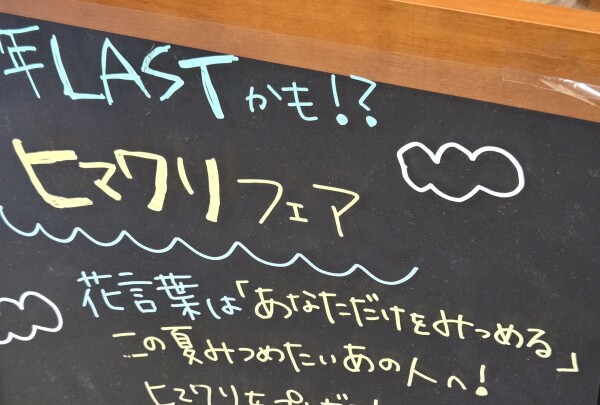 年LASTかも!?
ヒマワリフェア
花言葉は「あなただけをみつめる」
この夏みつめたいあの人へ!
ヒマワリを